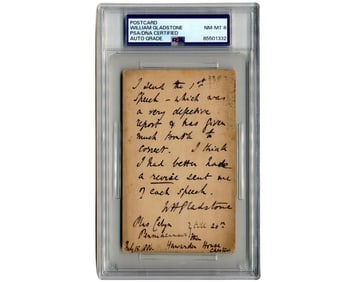 POSTCARD
WILLIAM GLADSTONE
PSA/DNA CERTIFIED
AUTO GRADE
NM-MT 8
PSA
85501332
I send the 1st
Speech - which was
a very defective
report & has given
much trouble to
correct. I think
I had better have
a revise sent me
of each speech.
WHGladstone
Hawarden House